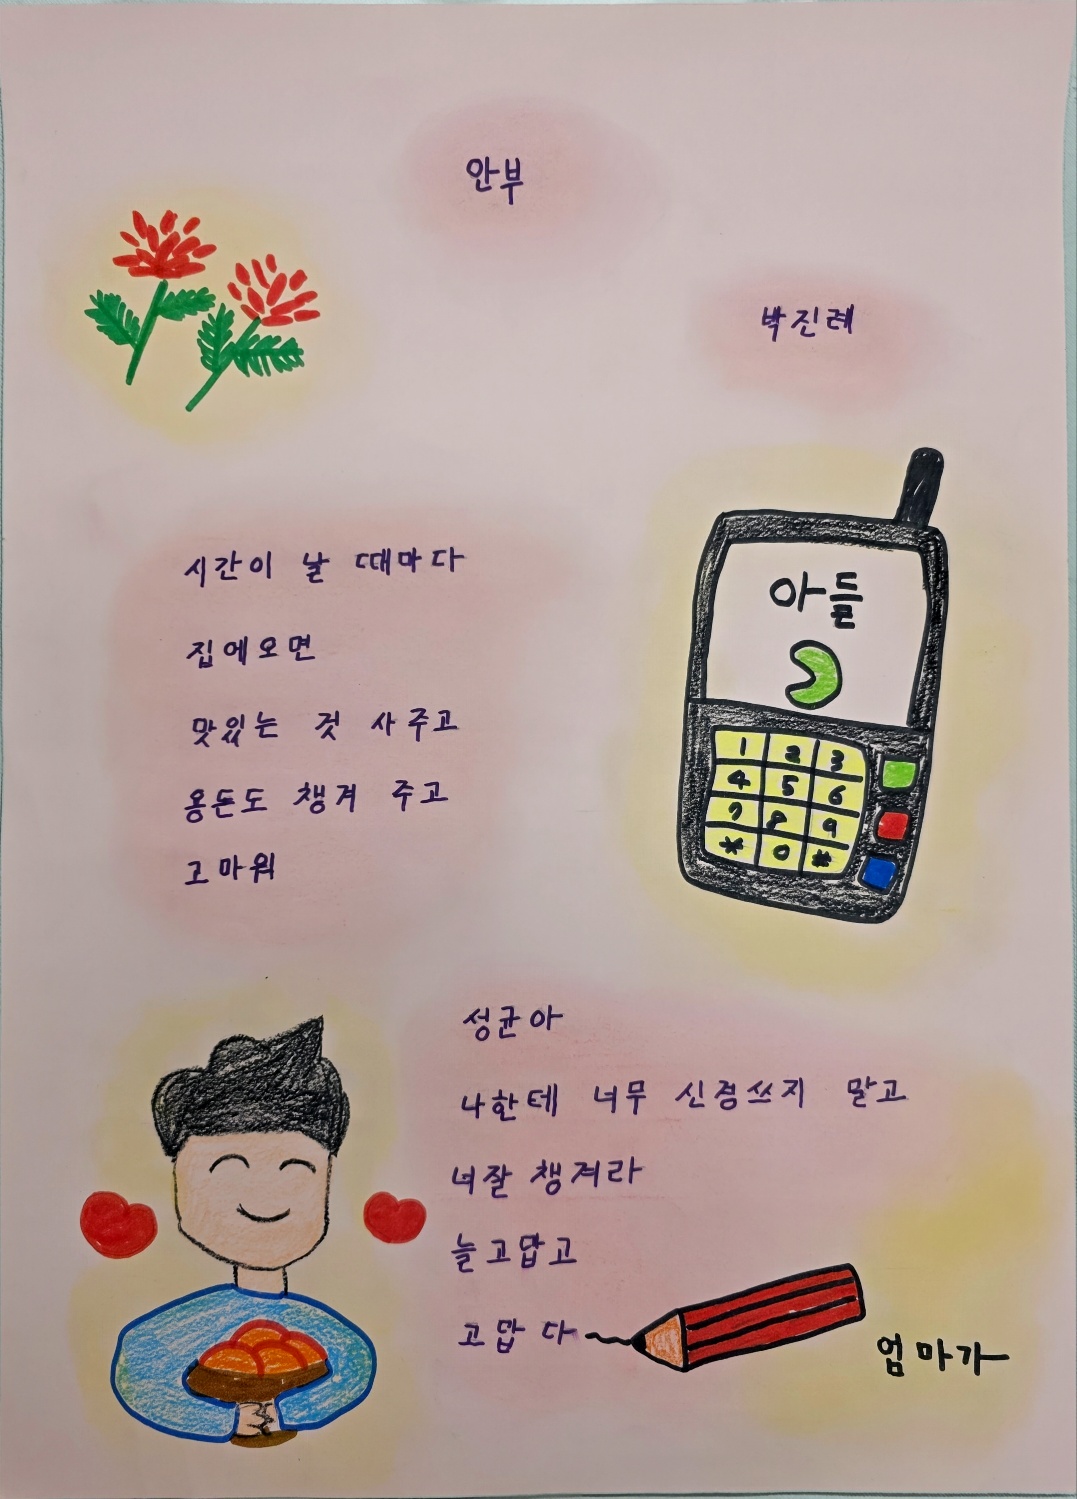 안부
박진례
시간이 날 때마다
집에오면
맛있는 것 사주고
용돈도 챙겨 주고
고마워
아들
1 2 3
4 5 6
7 8 9
* 0 #
성균아
나한테 너무 신경쓰지 말고
너잘 챙겨라
늘고맙고
고맙다
엄마가